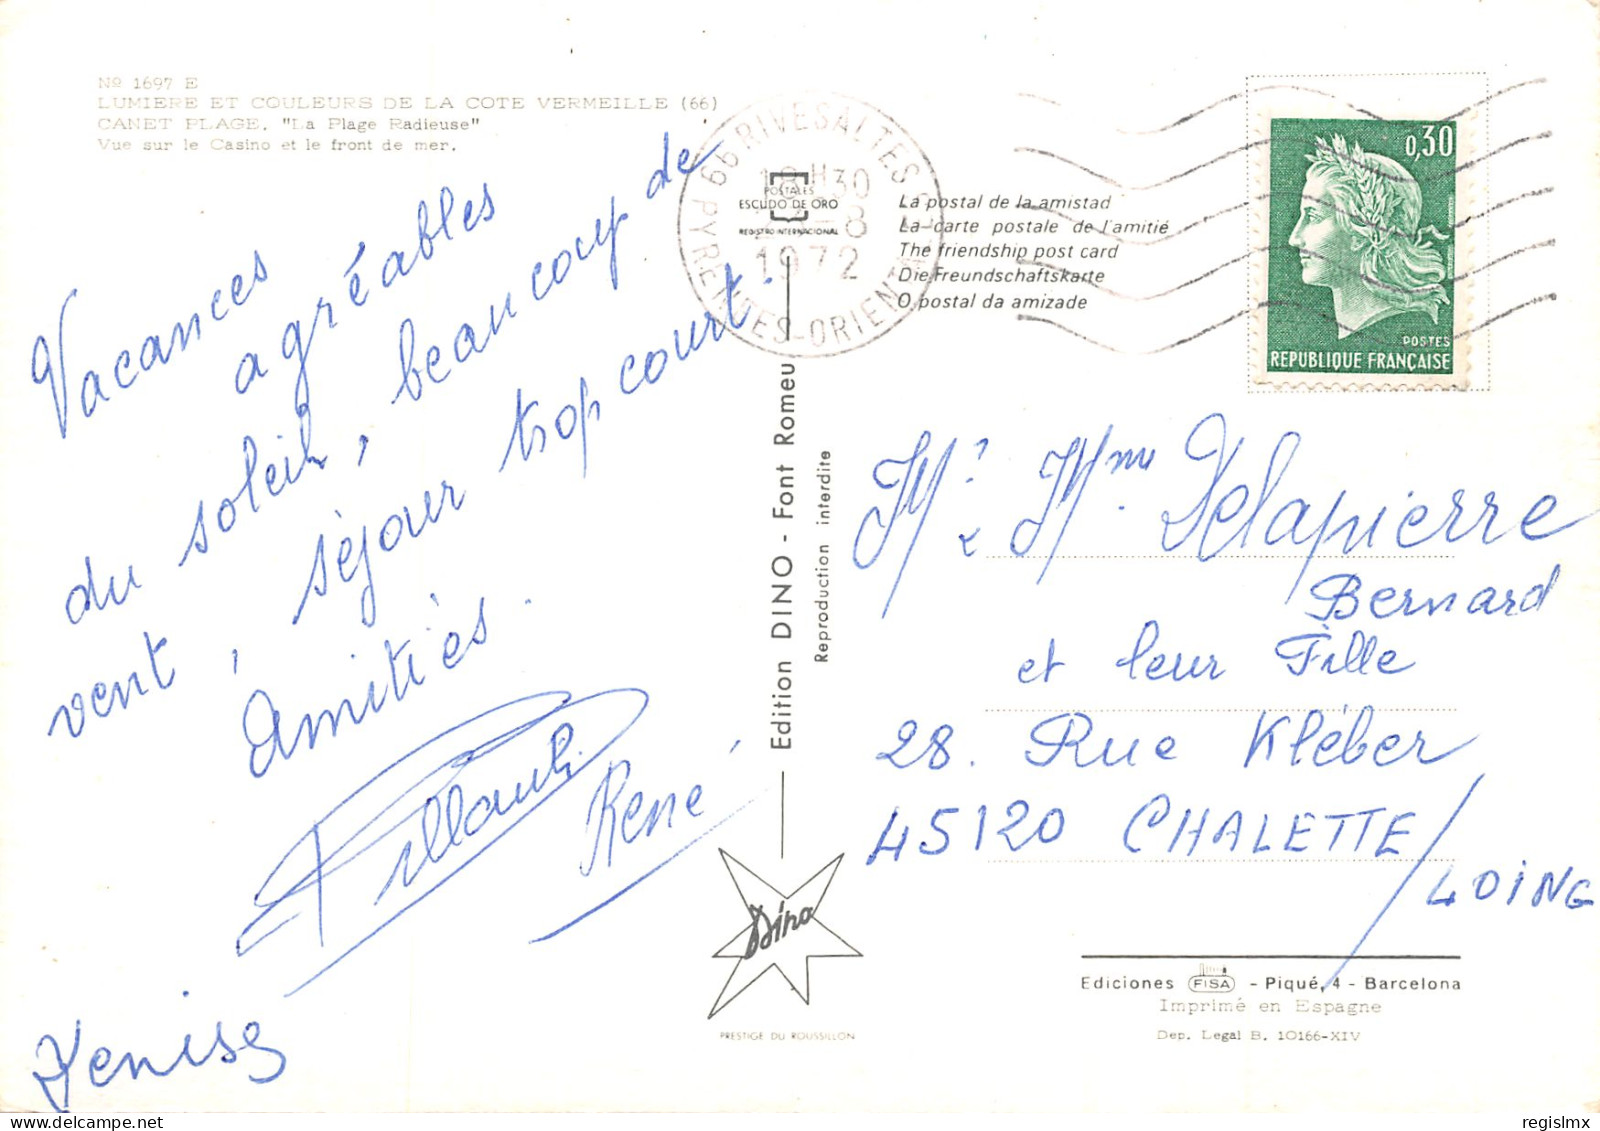 Nº 1697 E
LUMIERE ET COULEURS DE LA COTE VERMEILLE (66)
CANET PLAGE. "La Plage Radieuse"
Vue sur le Casino et le front de mer.
Vacances
agréables
du soleil, beaucoup de
vent, séjour trop court.
Amitiés.
René
Denise
66 RIVESALTES
PYRENEES-ORIENT
18H30
-8
1972
POSTALES
ESCUDO DE ORO
REGISTRO INTERNACIONAL
La postal de la amistad
La carte postale de l'amitié
The friendship post card
Die Freundschaftskarte
O postal da amizade
0,30
POSTES
REPUBLIQUE FRANÇAISE
Edition DINO - Font Romeu
Reproduction interdite
Dino
PRESTIGE DU ROUSSILLON
Mr & Mme Delapierre
Bernard
et leur Fille
28. Rue Kléber
45120 CHALETTE/
LOING
Ediciones FISA - Piqué, 4 - Barcelona
Imprimé en Espagne
Dep. Legal B. 10166-XIV
regislmx